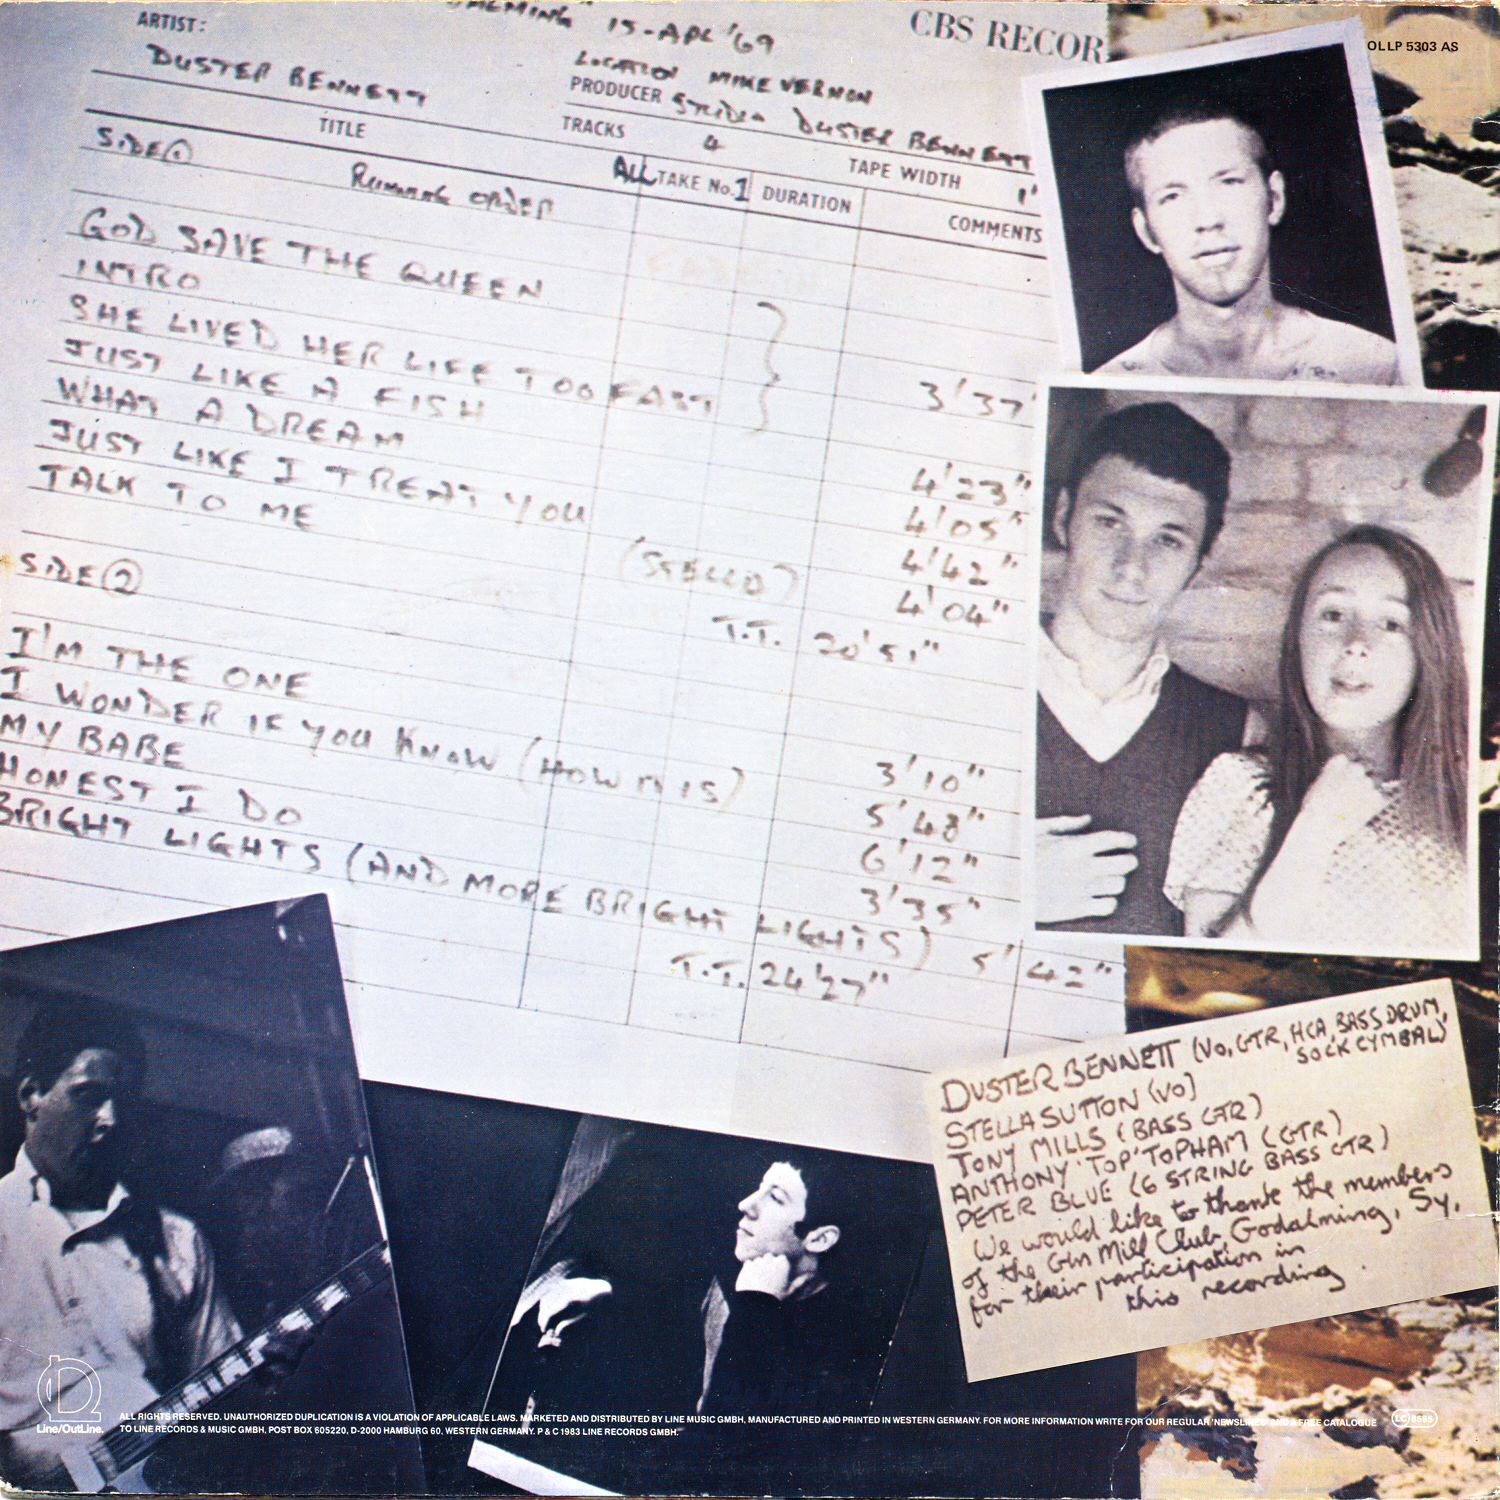 ARTIST:
15-APL '69
CBS RECOR
OLLP 5303 AS
DUSTER BENNETT
LOCATION MIKE VERNON
PRODUCER STUDIO DUSTER BENNETT
TITLE
TRACKS 4
TAPE WIDTH 1"
SIDE 1
RUNNING ORDER
ALL TAKE No. 1
DURATION
COMMENTS
GOD SAVE THE QUEEN
INTRO
SHE LIVED HER LIFE TOO FAST 3'37"
JUST LIKE A FISH 4'23"
WHAT A DREAM 4'05"
JUST LIKE I TREAT YOU 4'42"
TALK TO ME (STELLA) 4'04"
T.T. 20'51"
SIDE 2
I'M THE ONE 3'10"
I WONDER IF YOU KNOW (HOW IT IS) 5'48"
MY BABE 6'12"
HONEST I DO 3'35"
BRIGHT LIGHTS (AND MORE BRIGHT LIGHTS) 5'42"
T.T. 24'27"
DUSTER BENNETT (VO, GTR, HCA, BASS DRUM,
SOCK CYMBAL)
STELLA SUTTON (VO)
TONY MILLS (BASS GTR)
ANTHONY 'TOP' TOPHAM (GTR)
PETER BLUE (6 STRING BASS GTR)
We would like to thank the members
of the Gin Mill Club, Godalming, Sy,
for their participation in
this recording.
Line/OutLine.
ALL RIGHTS RESERVED. UNAUTHORIZED DUPLICATION IS A VIOLATION OF APPLICABLE LAWS. MARKETED AND DISTRIBUTED BY LINE MUSIC GMBH, MANUFACTURED AND PRINTED IN WESTERN GERMANY. FOR MORE INFORMATION WRITE FOR OUR REGULAR 'NEWSLINES' AND A FREE CATALOGUE
TO LINE RECORDS & MUSIC GMBH. POST BOX 605220, D-2000 HAMBURG 60. WESTERN GERMANY. P & C 1983 LINE RECORDS GMBH.
LC 8595